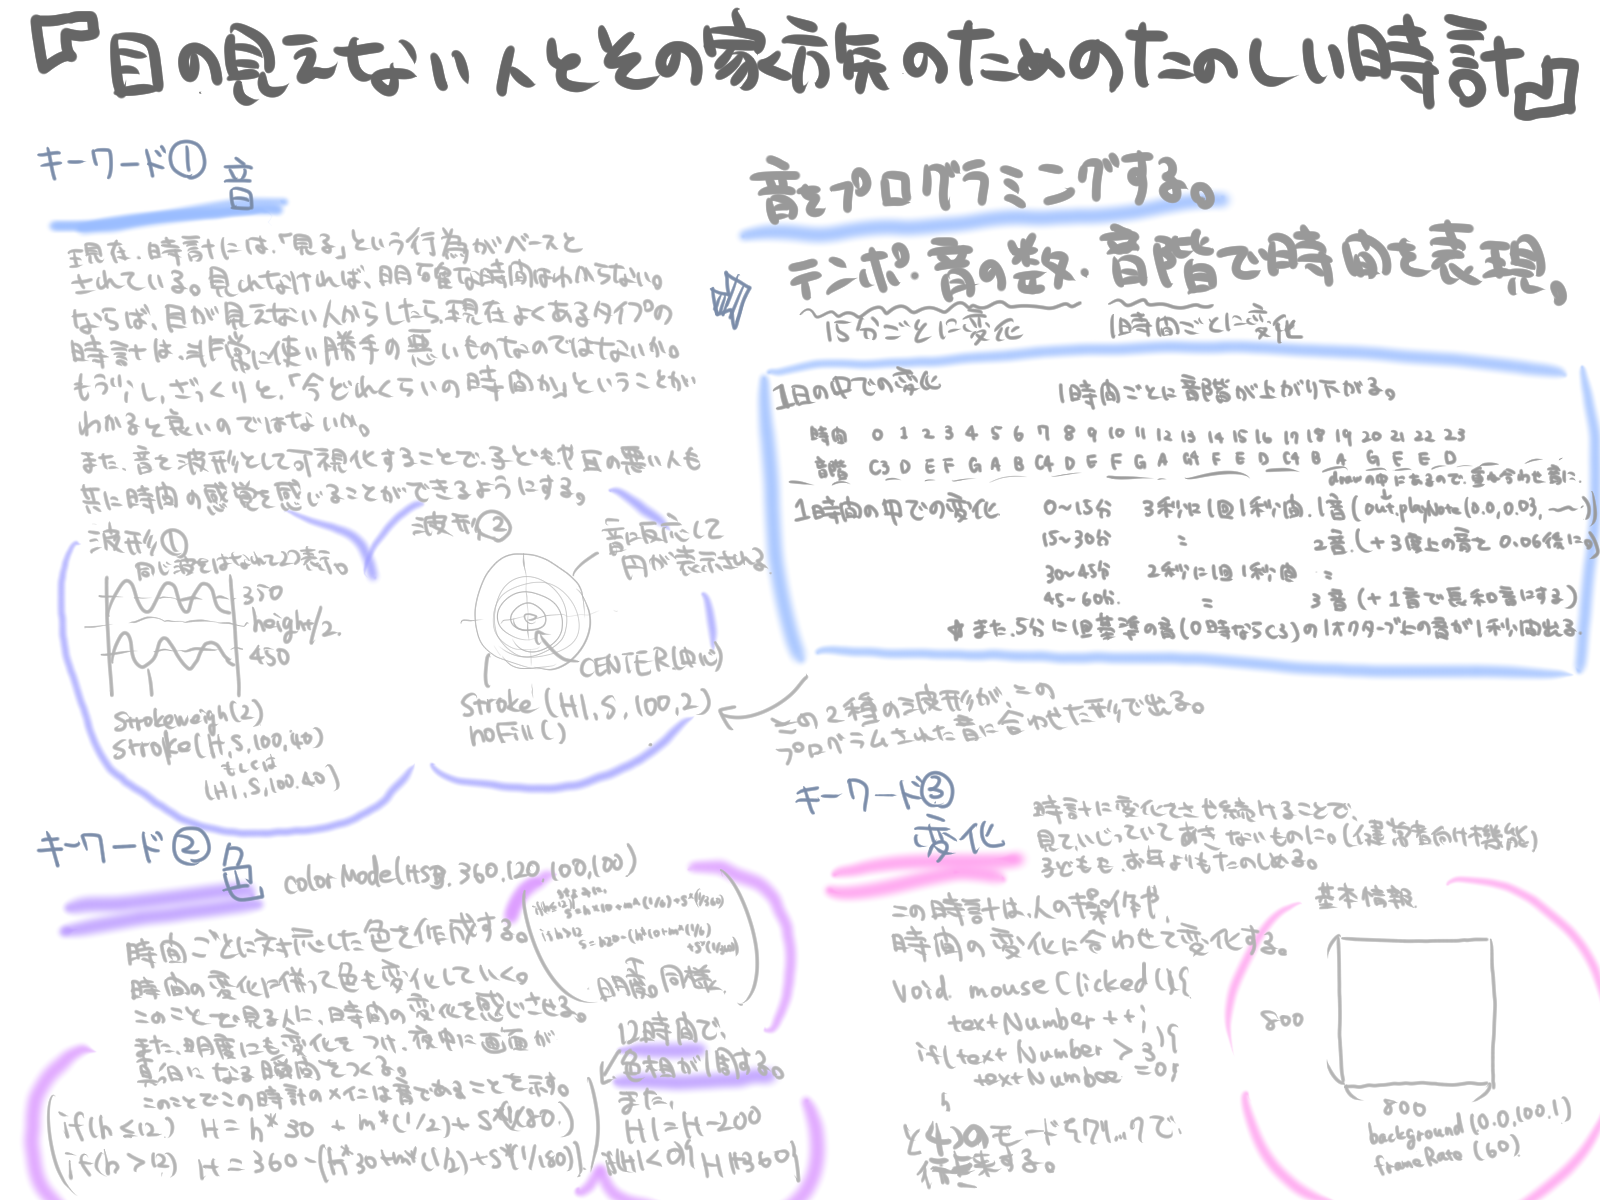 『目の見えない人とその家族のためのたのしい時計』
キーワード① 音
現在、時計には、「見る」という行為がベースと
されている。見れなければ、明確な時間はわからない。
ならば、目が見えない人からしたら、現在よくあるタイプの
時計は、非常に使い勝手の悪いものなのではないか。
もう少し、ざっくりと、「今どれくらいの時間か」ということが
わかると良いのではないか。
また、音を波形として可視化することで、子どもや耳の悪い人も
共に時間の感覚を感じることができるようにする。
波形①
同じ波をはなれて2つ表示。
350
height/2.
450
strokeweigh(2)
stroke(H,S,100,40)
もしくは
(H1,S,100.40)
波形②
音に反応して
円が表示される
CENTER(中心)
stroke(H1,S,100,2)
noFill()
音をプログラミングする。
テンポ・音の数・音階で時間を表現。
15分ごとに変化
1時間ごとに変化
1日の中での変化 1時間ごとに音階が上がり下がる。
時間 0 1 2 3 4 5 6 7 8 9 10 11 12 13 14 15 16 17 18 19 20 21 22 23
音階 C3 D E F G A B C4 D E F G A G4 F E D C4 B A G F E D
drawの中にあるので、重ね合わせ音に。
1時間の中での変化 0~15分 3秒に1回1秒間、1音(out.playNote(0.0,0.03, ))
15~30分 〃 2音.(+3度上の音を0.06後に。)
30~45分 2秒に1回1秒間 〃
45~60分. 〃 3音(+1音で長和音にする)
☆また、5分に1回基準の音(0時ならC3)の1オクターブ上の音が1秒間出る.
この2種の波形が、この
プログラムされた音に合わせた形で出る。
キーワード② 色
colorMode(HSB,360,120,100,100)
時間ごとに対応した色を作成する。
時間の変化に伴って色も変化していく。
このことで見る人に、時間の変化を感じさせる。
また、明度にも変化をつけ、夜中に画面が
真白になる瞬間をつくる。
このことでこの時計のメインは音であることを示す。
if(h≤12) H=h*30 + m*(1/2)+S*(1/180)
if(h>12) H=360-(h*30+m*(1/2)+S*(1/180))
if h>12
明度。同様.
12時間で、
色相が1周する。
また、
H1=H-200
if(H1<0){H1+360}
キーワード③
変化
時計に変化でさせ続けることで、
見ていじっていてあきないものに。(健常者向け機能)
子どもも、お年よりもたのしめる。
この時計は、人の操作や、
時間の変化に合わせて変化する。
void mouseClicked(){
textNumber++;
if(textNumber>3){
textNumber=0;
}
と4つのモードをクリックで、
行き来する。
基本情報
800
800
background(0.0,100.1)
frameRate(60)